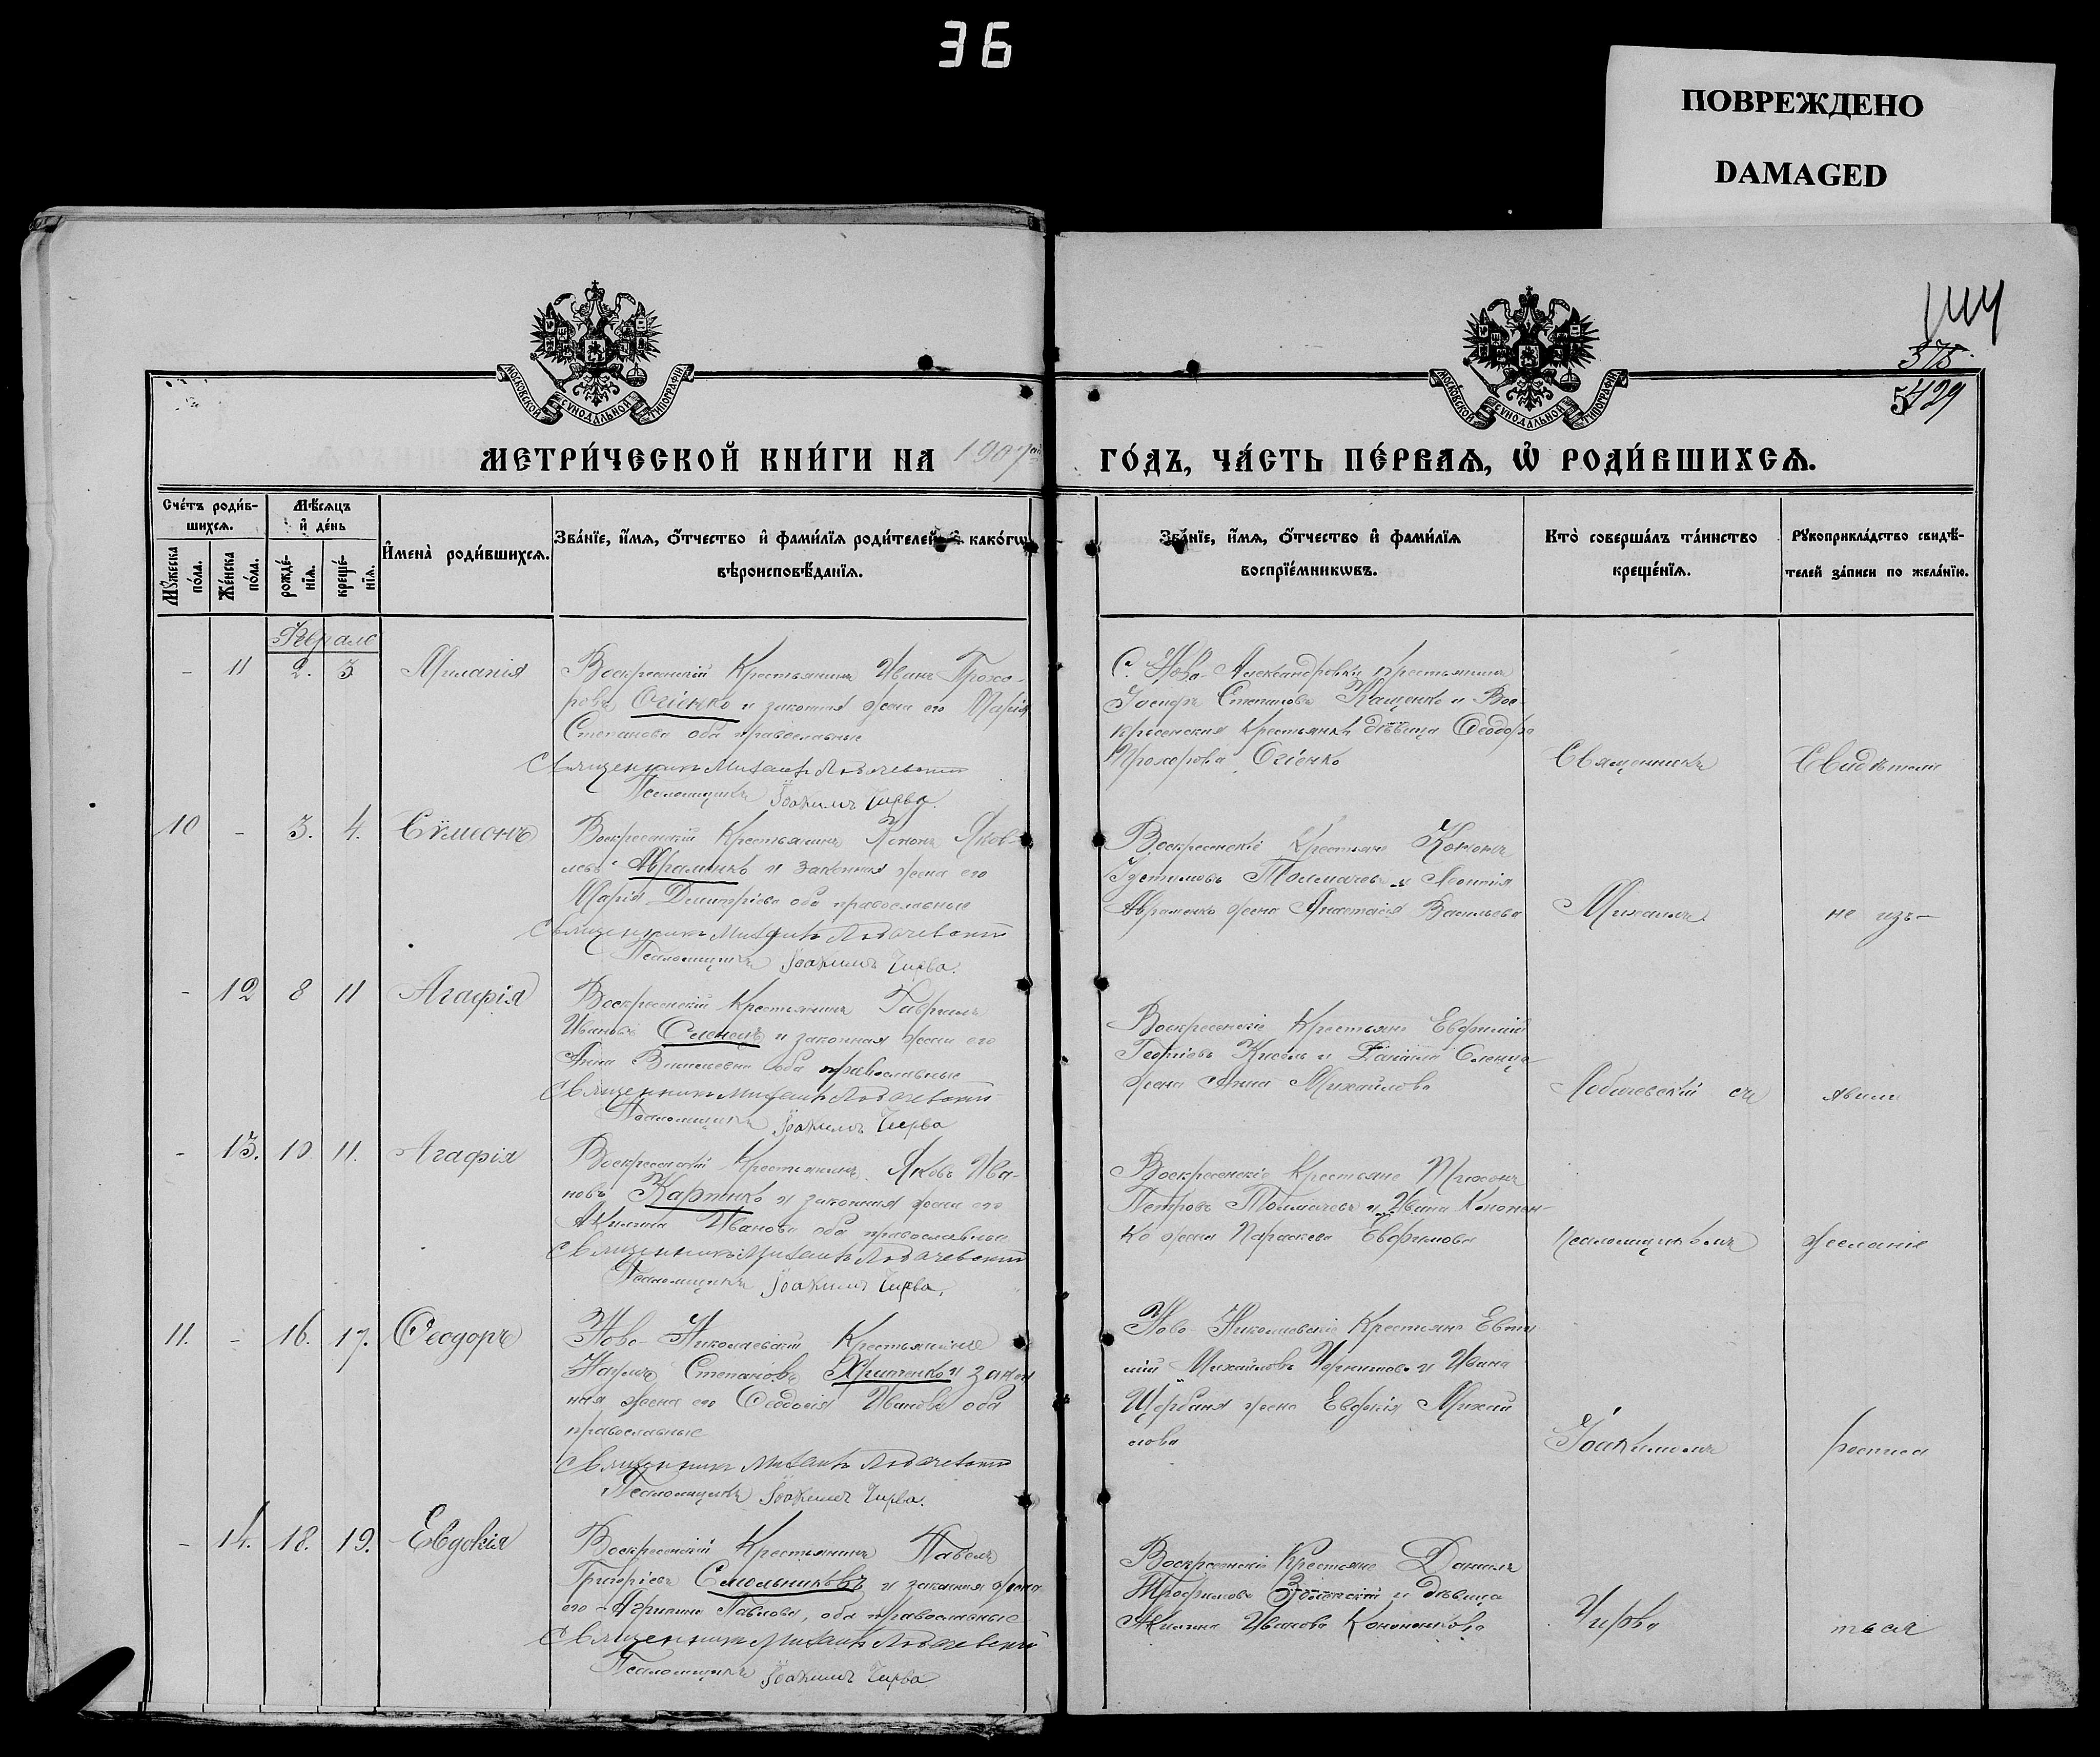 36
ПОВРЕЖДЕНО
DAMAGED
144
375
5429
МОСКОВСКОЙ СѴНОДАЛЬНОЙ ТИПОГРАФІИ
МОСКОВСКОЙ СѴНОДАЛЬНОЙ ТИПОГРАФІИ
МЕТРИ́ЧЕСКОЙ КНИ́ГИ НА 1907 ГО́ДЪ, ЧА́СТЬ ПЕ́РВАЯ, Ѡ҆ РОДИ́ВШИХСЯ.
Сче́тъ роди́вшихся.
Мꙋ́жеска по́ла.
Же́нска по́ла.
Мѣ́сяцъ и҆ де́нь
рожде́нїя.
креще́нїя.
И҆мена̀ роди́вшихся.
Зва́нїе, и҆́мя, ѻ҆́тчество и҆ фами́лїя роди́телей, и҆ како́гѡ
вѣроисповѣ́данїя.
Зва́нїе, и҆́мя, ѻ҆́тчество и҆ фами́лїя
воспрїе́мникѡвъ.
Кто̀ соверша́лъ та́инство
креще́нїя.
Рꙋкоприкла́дство свидѣ́-
телей за́писи по жела́нїю.
Феврале
- 11 2. 3 Миланія
Воскресенскій Крестьянинъ Иванъ Прохо-
ровъ Огіенко и законная жена его Марія
Степанова оба православные
Священникъ Михаилъ Лобачевскій
Псаломщикъ Іоакимъ Чирва.
С. Ново-Александровки крестьянинъ
Іосифъ Степановъ Кащенко и Вос-
кресенская Крестьянка дѣвица Ѳеодора
Прохорова Огіенко
Священникъ
Свидѣтели
10 - 3. 4. Сѵмеонъ
Воскресенскій Крестьянинъ Кононъ Яков-
левъ Авраменко и законная жена его
Марія Димитріева оба православные
Священникъ Михаилъ Лобачевскій
Псаломщикъ Іоакимъ Чирва.
Воскресенскіе Крестьяне Кононъ
Іустиновъ Толмачевъ и Леонтія
Авраменко жена Анастасія Васильева
Михаилъ
не изъ-
- 12 8 11 Агафія
Воскресенскій Крестьянинъ Гавріилъ
Ивановъ Сленецъ и законная жена его
Анна Васильевна оба православные
Священникъ Михаилъ Лобачевскій
Псаломщикъ Іоакимъ Чирва
Воскресенскіе Крестьяне Евфимій
Георгіевъ Кисель и Даніила Сленца
жена Анна Михайлова
Лобачевскій съ
явили
- 13. 10 11. Агафія
Воскресенскій Крестьянинъ Яковъ Ива-
новъ Карпенко и законная жена его
Акилина Иванова оба православные
Священникъ Михаилъ Лобачевскій
Псаломщикъ Іоакимъ Чирва.
Воскресенскіе Крестьяне Тихонъ
Петровъ Толмачевъ и Ивана Кононен-
ко жена Параскева Евфимова
псаломщикомъ
желаніе
11. - 16. 17. Ѳеодоръ
Ново-Николаевскій Крестьянинъ
Наумъ Степановъ Харченко и закон
ная жена его Ѳеодосія Иванова оба
православные
Священникъ Михаилъ Лобачевскій
Псаломщикъ Іоакимъ Чирва.
Ново-Николаевскіе Крестьяне Евѳи
мій Михайловъ и Ивана
Щербаня жена Евфимія Михай
лова
Іоакимомъ
росписа
- 14. 18. 19. Евдокія
Воскресенскій Крестьянинъ Павелъ
Григоріевъ Смольниковъ и законная жена
его Агрипина Павлова, оба православные
Священникъ Михаилъ Лобачевскій
Псаломщикъ Іоакимъ Чирва
Воскресенскіе Крестьяне Даніилъ
Трофимовъ и дѣвица
Акилина Иванова Кононенкова
Чирва
ться